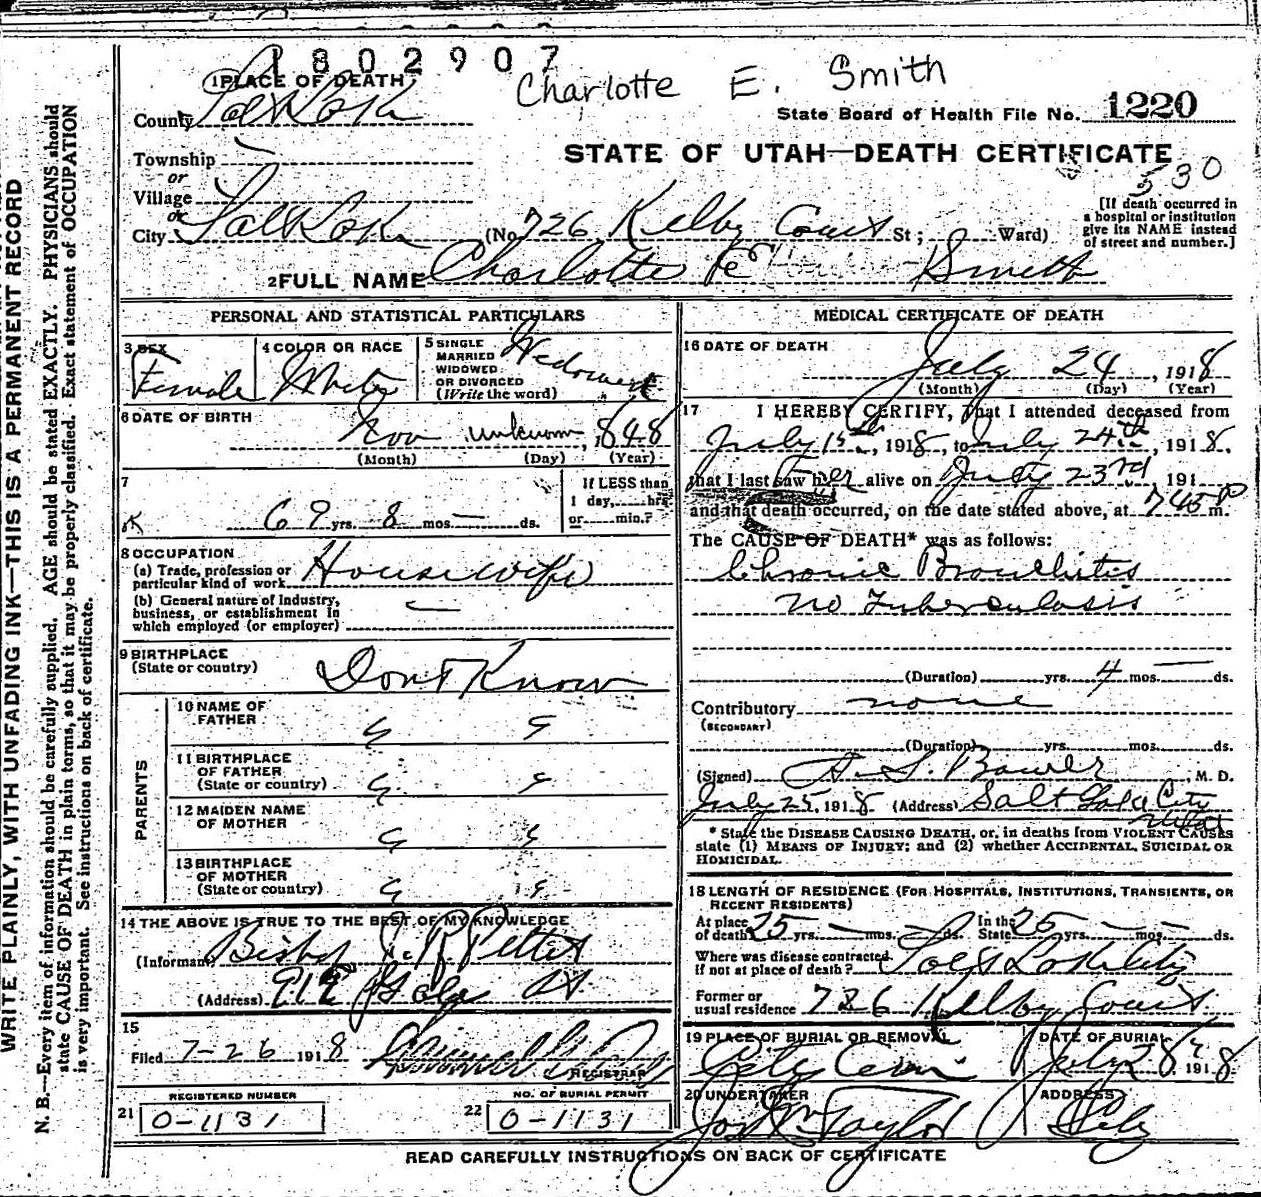 1802907
Charlotte E. Smith
1 PLACE OF DEATH
County Salt Lake
State Board of Health File No. 1220
Township —
or
Village
or
City Salt Lake
STATE OF UTAH—DEATH CERTIFICATE
530
(No. 726 Kelby Court St; Ward)
[If death occurred in
a hospital or institution
give its NAME instead
of street and number.]
2 FULL NAME Charlotte E Smith
PERSONAL AND STATISTICAL PARTICULARS
3 SEX
Female
4 COLOR OR RACE
White
5 SINGLE
MARRIED
WIDOWED
OR DIVORCED
(Write the word)
Widowed
6 DATE OF BIRTH
Nov unknown, 1848
(Month) (Day) (Year)
7
69 yrs. 8 mos. — ds.
If LESS than
1 day, hrs
or min.?
8 OCCUPATION
(a) Trade, profession or
particular kind of work Housewife
(b) General nature of Industry,
business, or establishment in
which employed (or employer) —
9 BIRTHPLACE
(State or country) Dont Know
PARENTS
10 NAME OF
FATHER " "
11 BIRTHPLACE
OF FATHER
(State or country) " "
12 MAIDEN NAME
OF MOTHER " "
13 BIRTHPLACE
OF MOTHER
(State or country) " "
14 THE ABOVE IS TRUE TO THE BEST OF MY KNOWLEDGE
(Informant) Bishop
(Address)
15
Filed 7-26 1918
REGISTRAR
REGISTERED NUMBER
21 0-1131
NO. OF BURIAL PERMIT
22 0-1131
MEDICAL CERTIFICATE OF DEATH
16 DATE OF DEATH
July 24, 1918
(Month) (Day) (Year)
17 I HEREBY CERTIFY, That I attended deceased from
July 15th, 1918, to July 24th, 1918,
that I last saw her alive on July 23rd, 191
and that death occurred, on the date stated above, at 745 P m.
The CAUSE OF DEATH* was as follows:
Chronic Bronchitis
no Tuberculosis
(Duration) yrs. 4 mos. — ds.
Contributory none
(SECONDARY)
(Duration) yrs. mos. ds.
(Signed) Bower, M. D.
July 25, 1918 (Address) Salt Lake City
Utah
* State the DISEASE CAUSING DEATH, or, in deaths from VIOLENT CAUSES
state (1) MEANS OF INJURY; and (2) whether ACCIDENTAL, SUICIDAL OR
HOMICIDAL.
18 LENGTH OF RESIDENCE (FOR HOSPITALS, INSTITUTIONS, TRANSIENTS, OR
RECENT RESIDENTS)
At place
of death 25 yrs. — mos. — ds.
In the
State 25 yrs. — mos. — ds.
Where was disease contracted
if not at place of death? Salt Lake City
Former or
usual residence 726 Kelby Court
19 PLACE OF BURIAL OR REMOVAL
City Cem
DATE OF BURIAL
July 28, 1918
20 UNDERTAKER
Jos Taylor
ADDRESS
City
READ CAREFULLY INSTRUCTIONS ON BACK OF CERTIFICATE
WRITE PLAINLY, WITH UNFADING INK—THIS IS A PERMANENT RECORD
N. B.—Every item of information should be carefully supplied. AGE should be stated EXACTLY. PHYSICIANS should
state CAUSE OF DEATH in plain terms, so that it may be properly classified. Exact statement of OCCUPATION
is very important. See instructions on back of certificate.